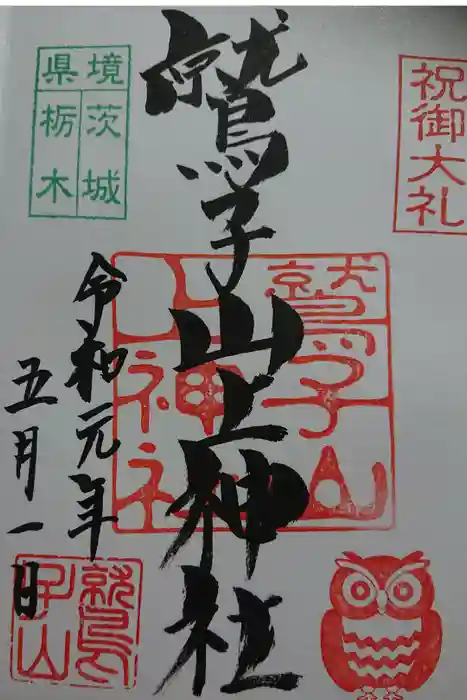 祝御大礼
鷲子山上神社
鷲子山
上神社
県境
茨城
栃木
令和元年
五月一日
鷲
子山